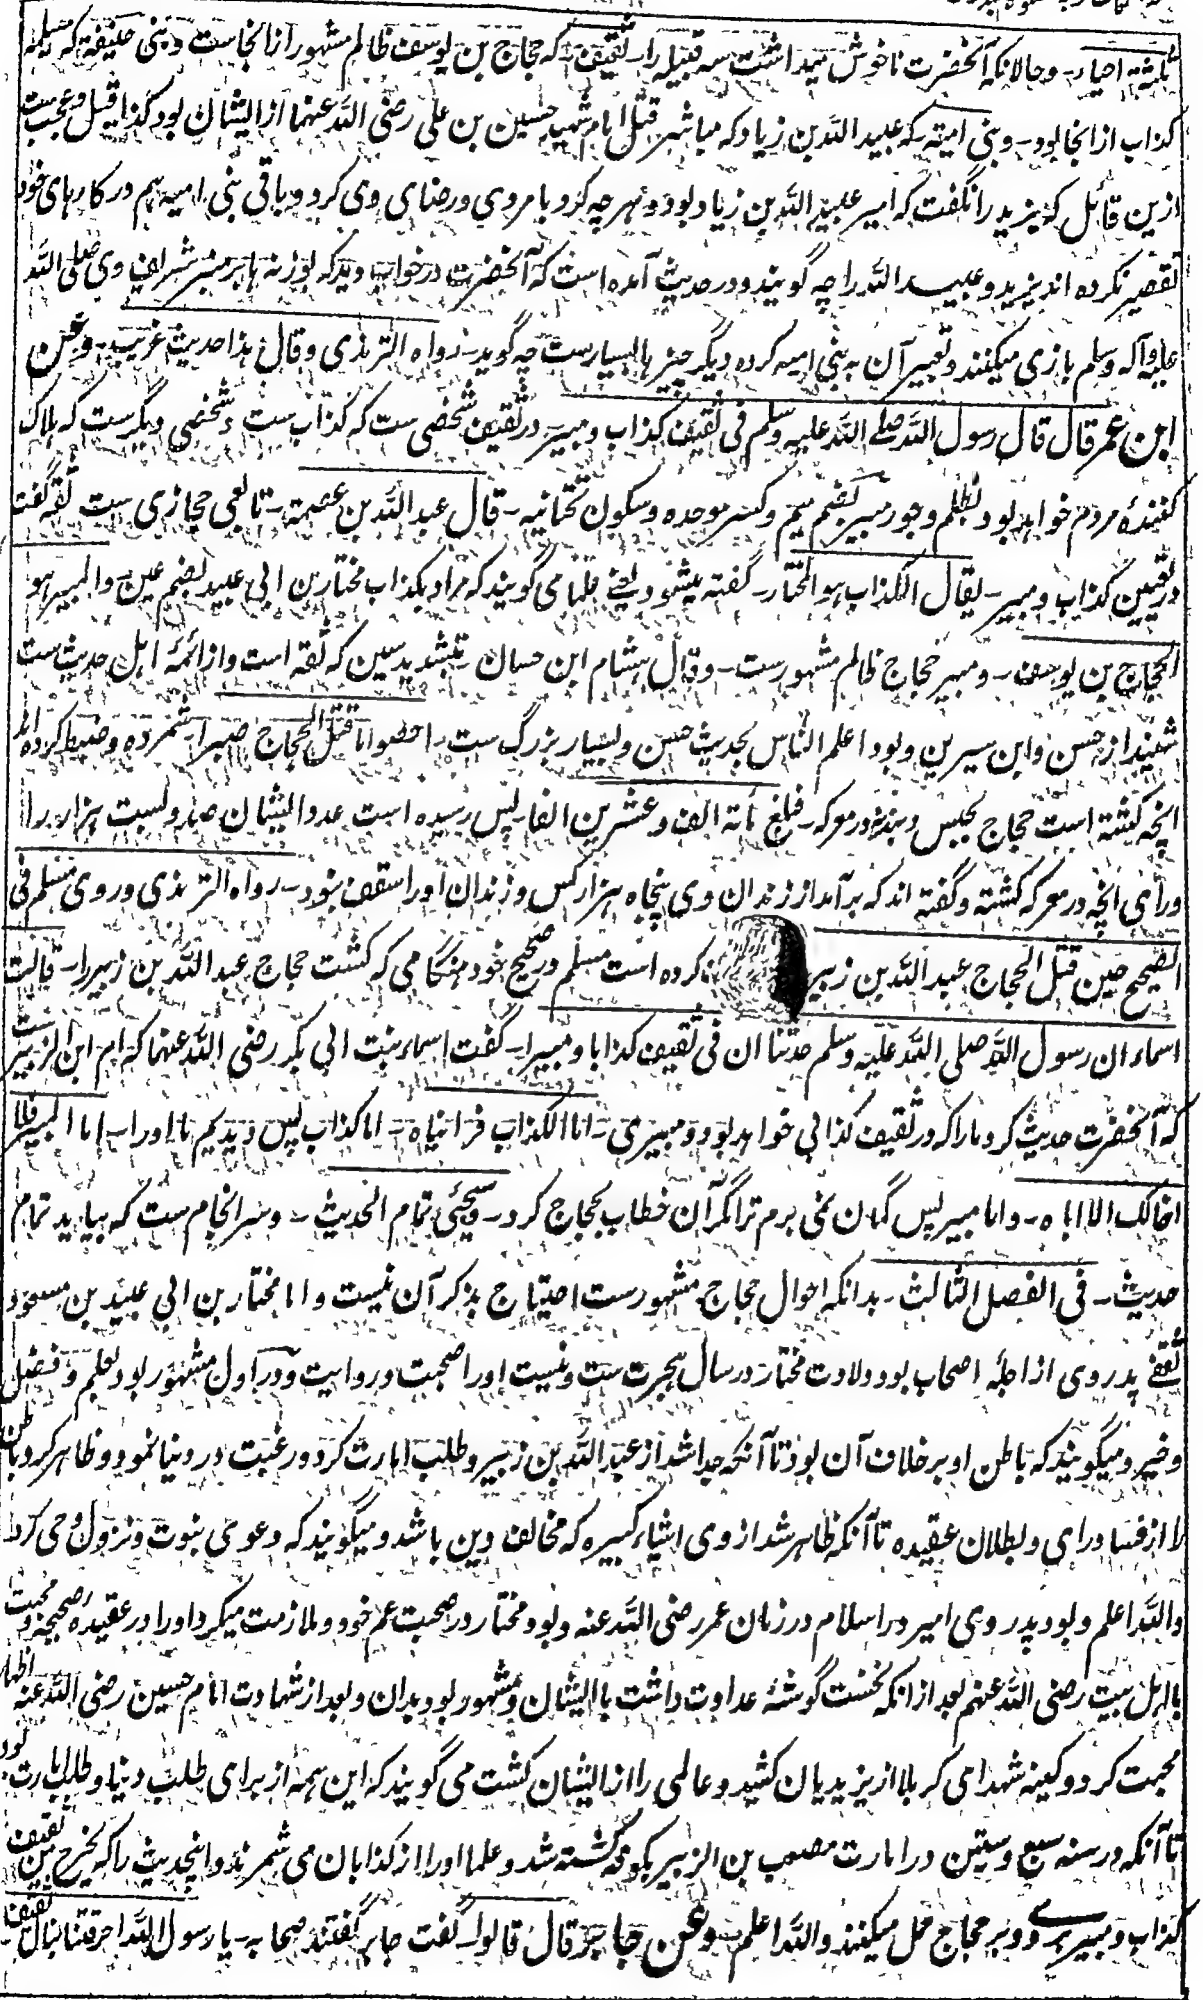 ثلثة احیاء۔ و حالانکه آنحضرت ناخوش میداشت سه قبیله را۔ ثقیف۔ که حجاج بن یوسف ظالم مشهور از آنجاست و بنی حنیفة که مسیلمه
کذاب از آنجا بود۔ و بنی امیة۔ که عبید الله بن زیاد که مباشر قتل امام شهید حسین بن علی رضی الله عنهما از ایشان بود کذا قیل و عجب ست
ازین قائل که یزید را نگفت که امیر عبید الله بن زیاد بود و هر چه کرد بامر وی و رضای وی کرد و باقی بنی امیه هم در کارهای خود
تقصیر نکرده اند یزید و عبید الله را چه گویند و در حدیث آمده است که آنحضرت در خواب دید که بوزنه ها بر منبر شریف وی صلی الله
علیه وآله وسلم بازی میکنند و تعبیر آن به بنی امیه کرده دیگر چیزها بسیارست چه گوید۔ رواه الترمذی و قال هذا حدیث غریب۔ وعن
ابن عمر قال قال رسول الله صلے الله علیه وسلم فی ثقیف کذاب و مبیر۔ در ثقیف شخصی ست که کذاب ست و شخصی دیگرست که هلاک
کننده مردم خواهد بود بظلم و جور مبیر بضم میم و کسر موحده و سکون تحتانیه۔ قال عبد الله بن عصمة۔ تابعی حجازی ست ثقه گفت
در ثقیف کذاب و مبیر۔ یقال الکذاب هو المختار۔ گفته میشود یعنے علما می گویند که مراد بکذاب مختار بن ابی عبید بضم عین۔ والمبیر هو
الحجاج بن یوسف۔ و مبیر حجاج ظالم مشهورست۔ و قال هشام ابن حسان۔ بتشدید سین که ثقه است و از ائمهٔ اهل حدیث ست
شنید از حسن و ابن سیرین و بود اعلم الناس بحدیث حسن و بسیار بزرگ ست۔ احصوا ما قتل الحجاج صبرا۔ شمرده و ضبط کرده اند
آنچه کشته است حجاج بحبس و بند نه در معرکه۔ فبلغ مائة الف و عشرین الفا۔ پس رسیده است عدد ایشان صد و بست هزار را
ورای آنچه در معرکه کشته و گفته اند که برآمد از زندان وی پنجاه هزار کس و زندان او را سقف نبود۔ رواه الترمذی و روی مسلم فی
الصحیح حین قتل الحجاج عبد الله بن زبیر کرده است مسلم در صحیح خود هنگامی که کشت حجاج عبد الله بن زبیر را۔ قالت
اسماء ان رسول الله صلی الله علیه وسلم حدثنا ان فی ثقیف کذابا و مبیرا۔ گفت اسماء بنت ابی بکر رضی الله عنهما که ام ابن الزبیر ست
که آنحضرت حدیث کرد ما را که در ثقیف کذابی خواهد بود و مبیری۔ اما الکذاب فرایناه۔ اما کذاب پس دیدیم ما او را۔ اما المبیر فلا
اخالک الا ایاه۔ و اما مبیر پس گمان نمی برم ترا مگر آن خطاب بحجاج کرد۔ وسیجئی تمام الحدیث۔ و سرانجام ست که بیاید تمام
حدیث۔ فی الفصل الثالث۔ بدانکه احوال حجاج مشهورست احتیاج بذکر آن نیست و اما مختار بن ابی عبید بن مسعود
ثقفے پدر وی از اجلهٔ اصحاب بود و ولادت مختار در سال هجرت ست و نیست او را صحبت و روایت و در اول مشهور بود بعلم و فضل
و خیر و میگویند که باطن او بر خلاف آن بود تا آنکه جدا شد از عبد الله بن زبیر و طلب امارت کرد و رغبت در دنیا نمود و ظاهر کرد باطن
را از فساد رای و بطلان عقیده تا آنکه ظاهر شد از وی اشیاء کبیره که مخالف دین باشد و میگویند که دعوی نبوت و نزول وحی کرد
والله اعلم و بود پدر وی امیر در اسلام در زمان عمر رضی الله عنه و بود مختار در صحبت عم خود و ملازمت میکرد او را در عقیدهٔ صحیحه و محبت
با اهل بیت رضی الله عنهم بعد از آنکه نخست گوشهٔ عداوت داشت با ایشان و مشهور بود بدان و بعد از شهادت امام حسین رضی الله عنه اظهار
محبت کرد و کینه شهدای کربلا از یزیدیان کشید و عالمی را از ایشان کشت می گویند که این همه از برای طلب دنیا و طلب امارت بود
تا آنکه در سنه سبع و ستین در امارت مصعب بن الزبیر بکوفه کشته شد و علما او را از کذابان می شمرند و این حدیث را که یخرج من ثقیف
کذاب و مبیر برے و بر حجاج حمل میکنند والله اعلم۔ وعن جابر قال قالوا۔ گفت جابر گفتند صحابه۔ یا رسول الله احرقتنا نبال ثقیف